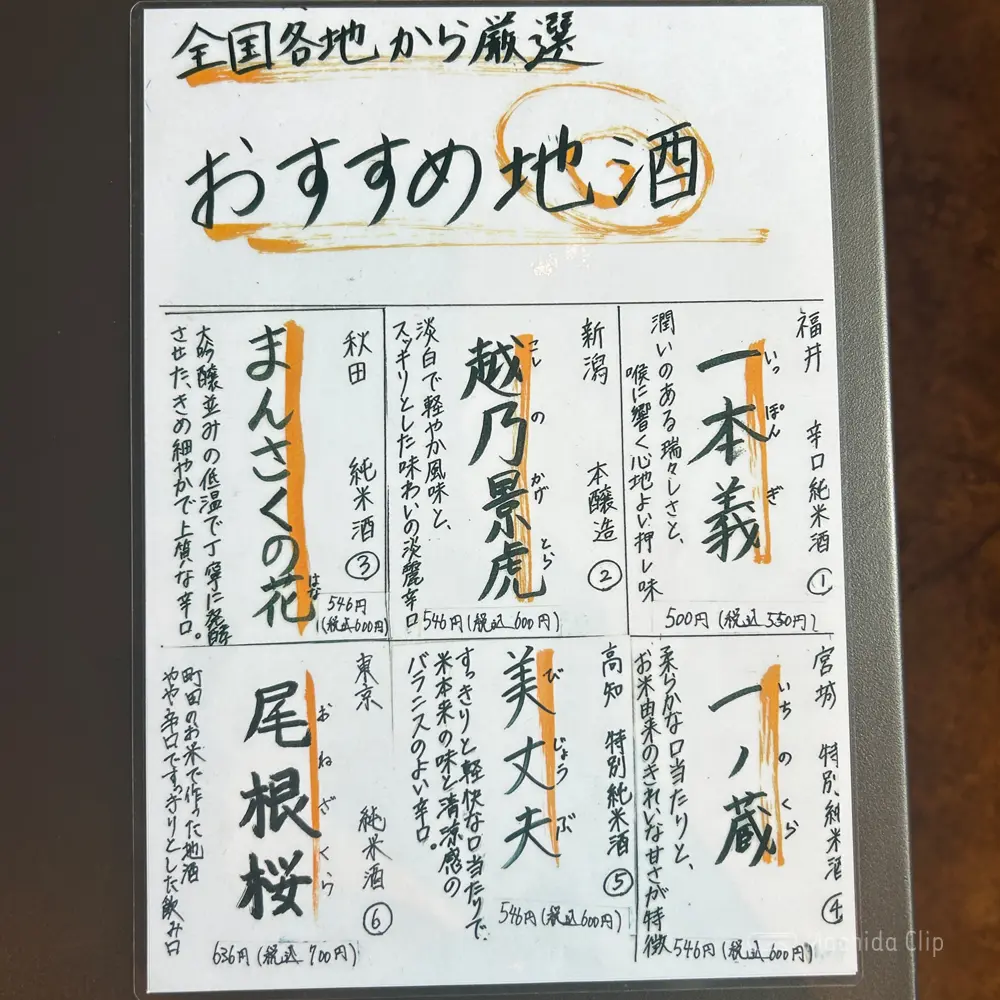 全国各地から厳選
おすすめ地酒
福井 辛口純米酒 ①
一本義
いっぽんぎ
潤いのある瑞々しさと、
喉に響く心地よい押し味
500円(税込 550円)
新潟 本醸造 ②
越乃景虎
こしのかげとら
淡白で軽やか風味と、
スッキリとした味わいの淡麗辛口
546円(税込 600円)
秋田 純米酒 ③
まんさくの花
はな
大吟醸並みの低温で丁寧に発酵
させた、きめ細やかで上質な辛口。
546円
(税込 600円)
宮城 特別純米酒 ④
一ノ蔵
いちのくら
柔らかな口当たりと、
お米由来のきれいな甘さが特徴
546円(税込 600円)
高知 特別純米酒 ⑤
美丈夫
びじょうぶ
すっきりと軽快な口当たりで
米本来の味と清涼感の
バランスのよい辛口。
546円(税込 600円)
東京 純米酒 ⑥
尾根桜
おねざくら
町田のお米で作った地酒
やや辛口ですっきりとした飲み口
636円(税込 700円)
Machida Clip